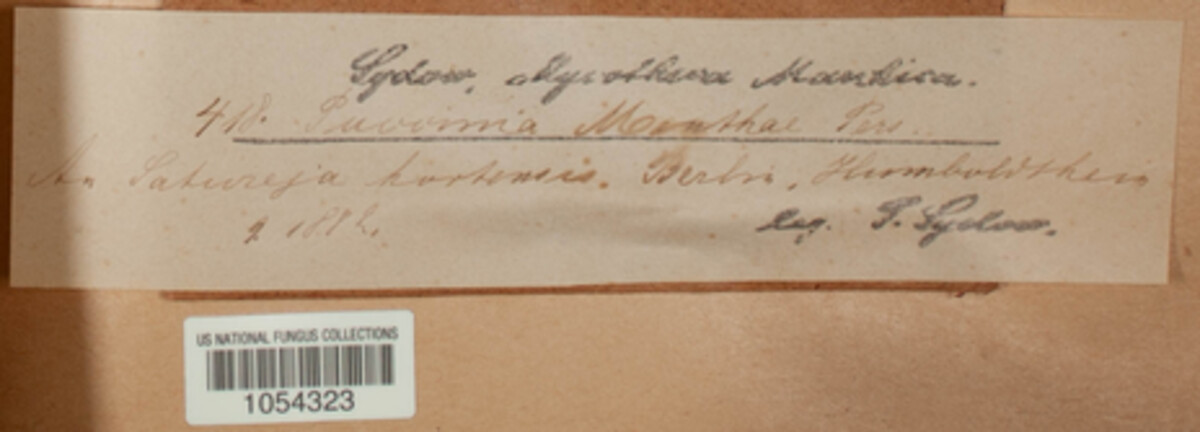 Sydow, Mycotheca Marchica.
418. Puccinia Menthae Pers.
An Satureja hortensis. Berlin, Humboldthain
9 1882.
leg. P. Sydow.
US NATIONAL FUNGUS COLLECTIONS
1054323